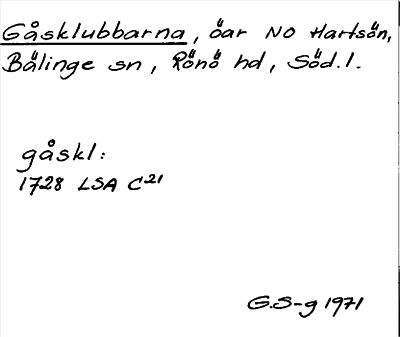 Gåsklubbarna, öar NO Hartsön,
Bälinge sn, Rönö hd, Söd. l.
gåskl:
1728 LSA C21
G.S-g 1971